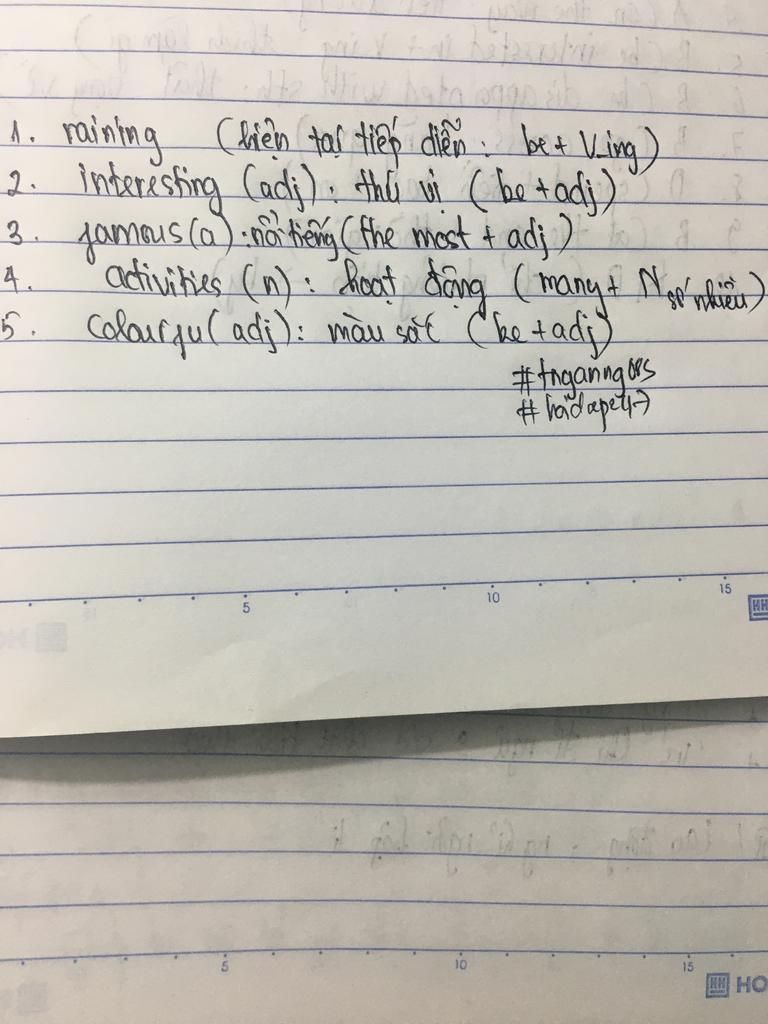 1. raining (hiện tại tiếp diễn: be + V_ing)
2. interesting (adj): thú vị (be + adj)
3. famous (a): nổi tiếng (the most + adj)
4. activities (n): hoạt động (many + N số nhiều)
5. colourfu (adj): màu sắc (be + adj)
5 10 15
5 10 15
HO